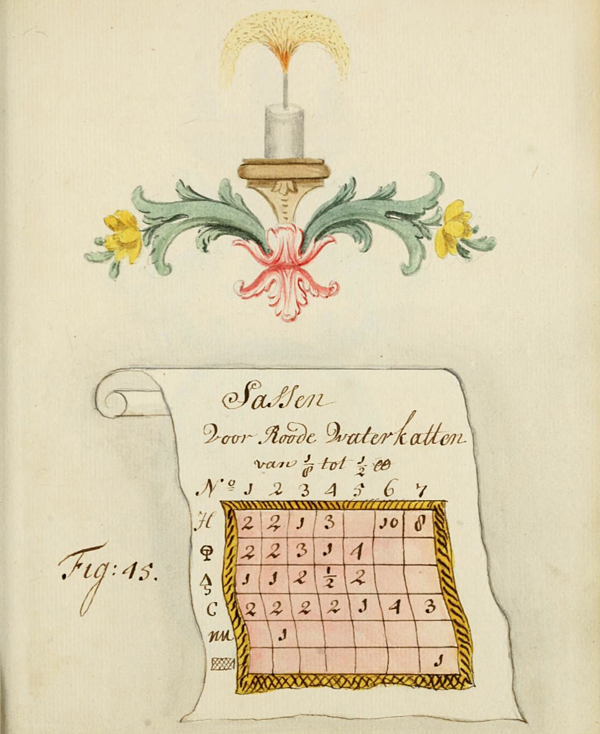 Sassen
Voor Roode Waterkatten
van 1/8 tot 1/2 ℔
No 1 2 3 4 5 6 7
H 2 2 1 3 10 8
2 2 3 1 4
1 1 2 1/2 2
C 2 2 2 2 1 4 3
nu 1
1
Fig: 45.